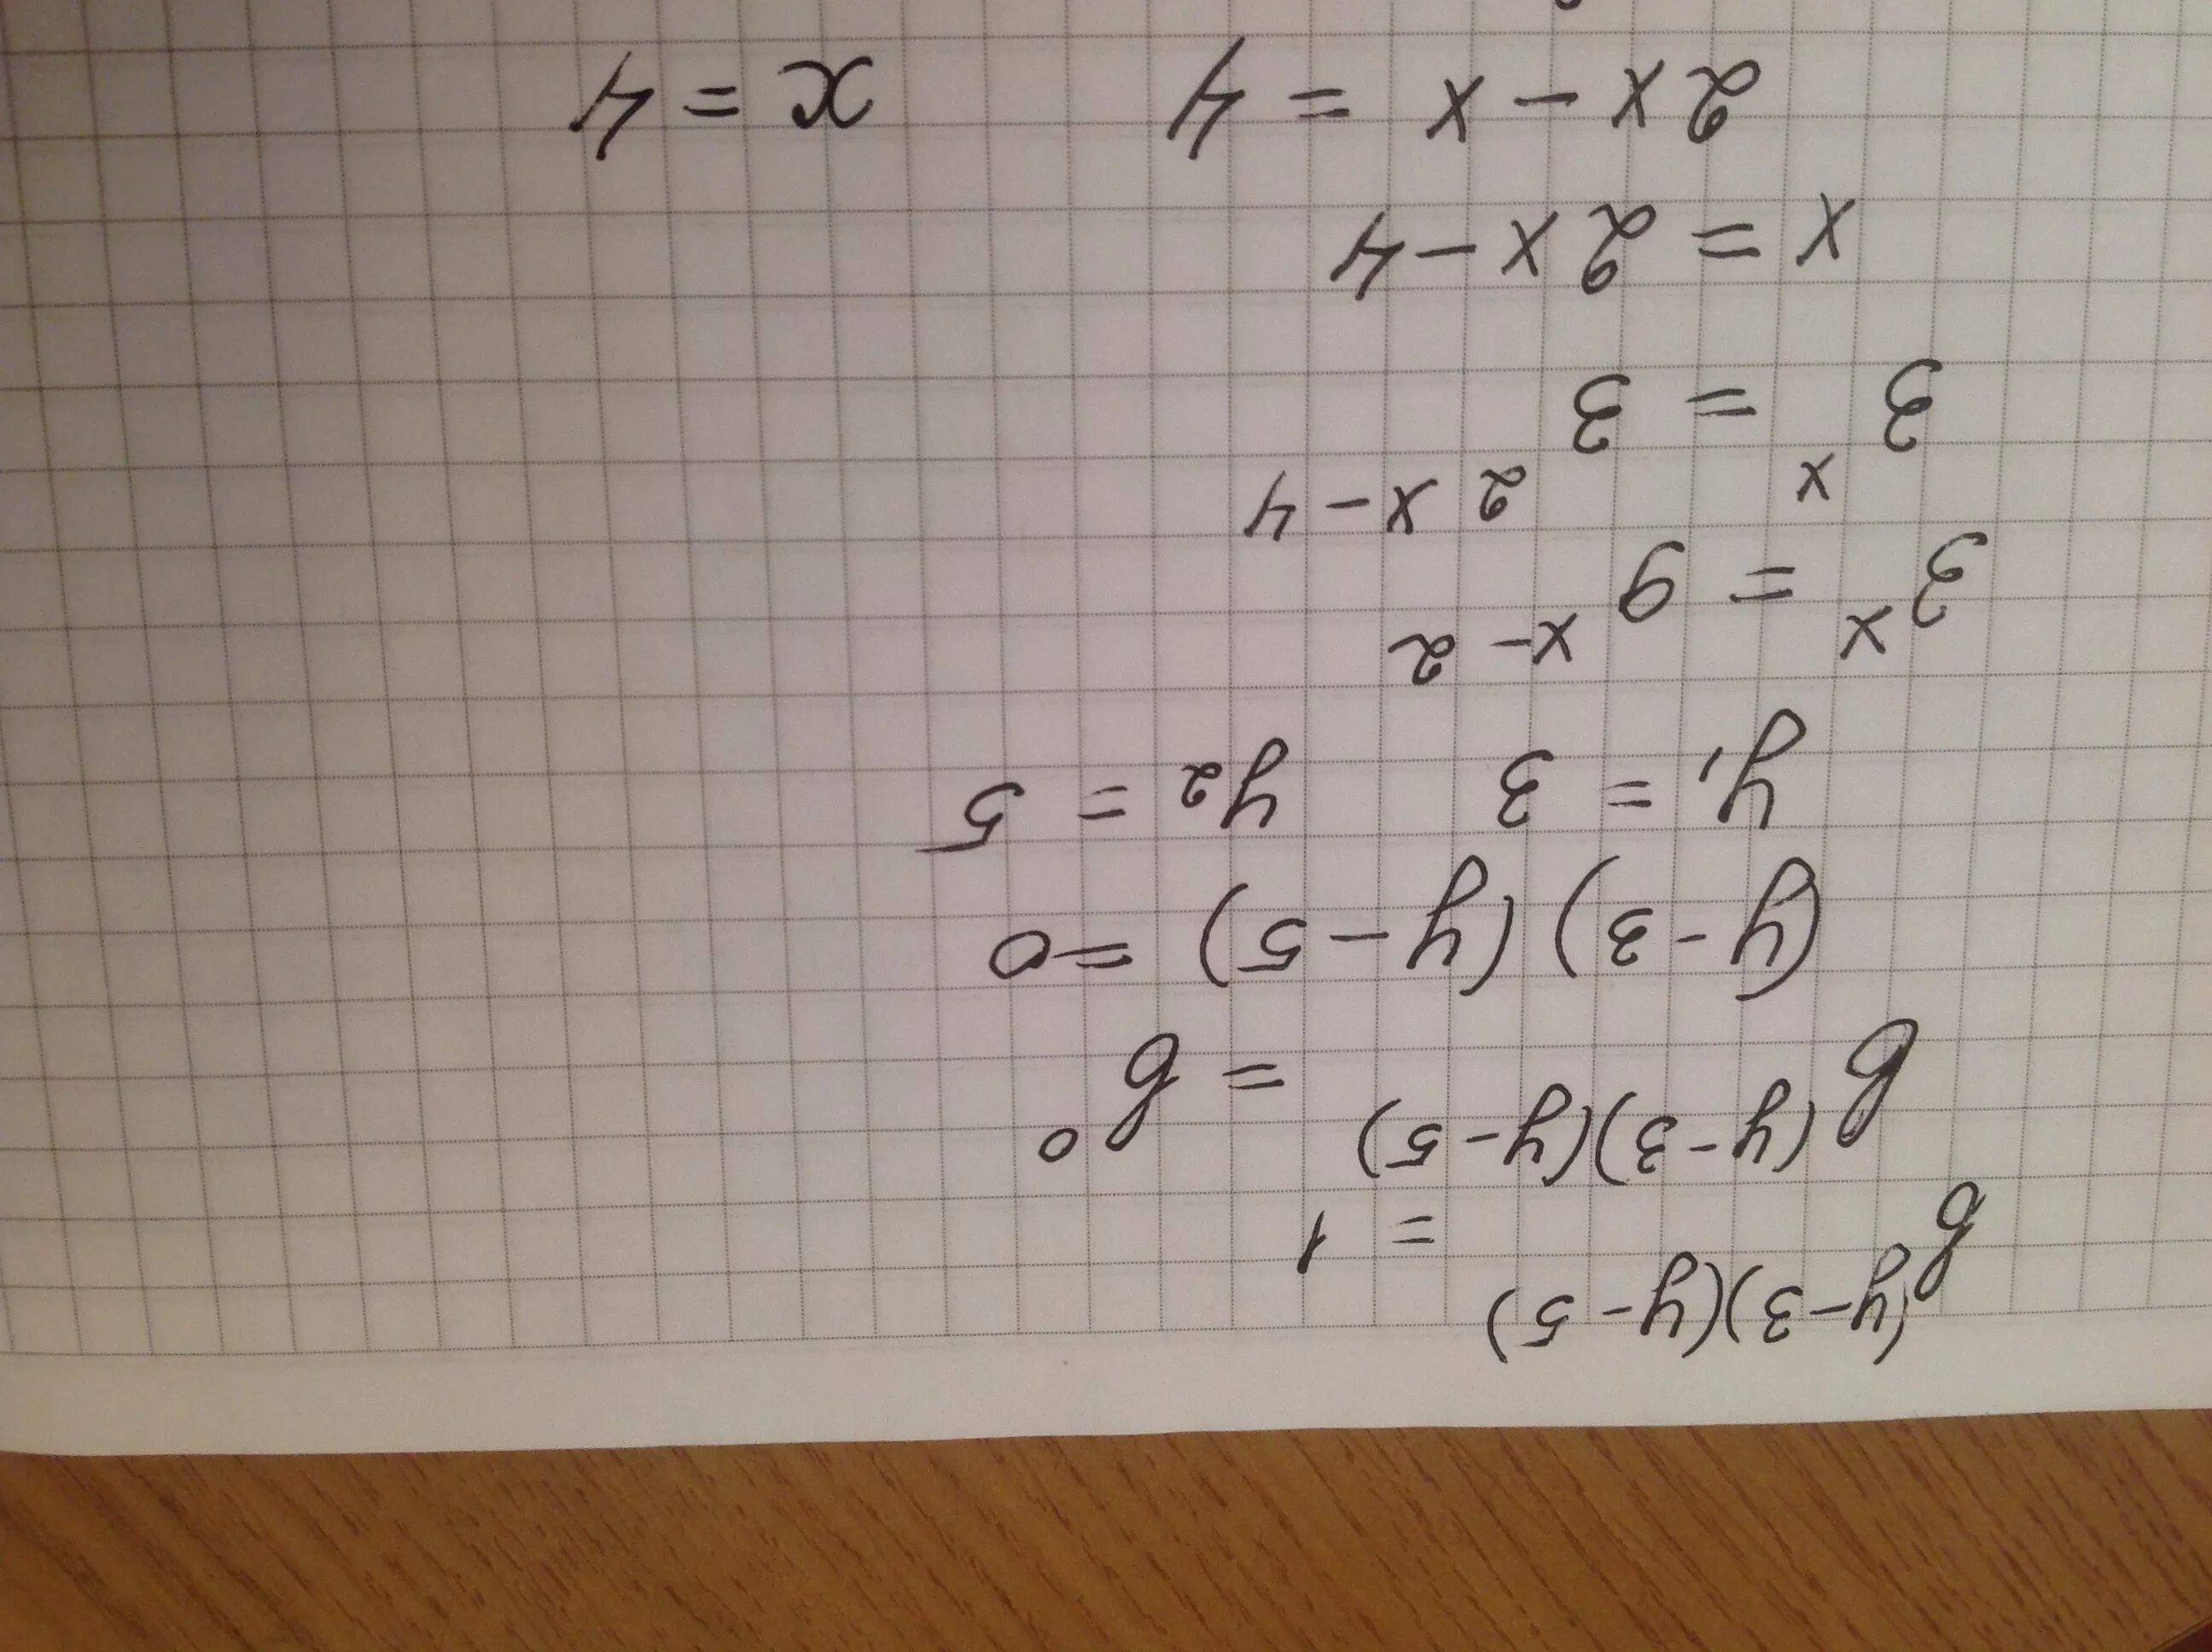 8^{(y-3)(y-5)} = 1
8^{(y-3)(y-5)} = 8^0
(y-3)(y-5) = 0
y₁ = 3 y₂ = 5
3^x = 9^{x-2}
3^x = 3^{2x-4}
x = 2x-4
2x-x = 4 x = 4